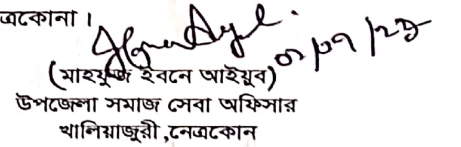 ত্রকোনা ।
০২/০৭/২৩
(মাহফুজ ইবনে আইয়ুব)
উপজেলা সমাজ সেবা অফিসার
খালিয়াজুরী ,নেত্রকোন